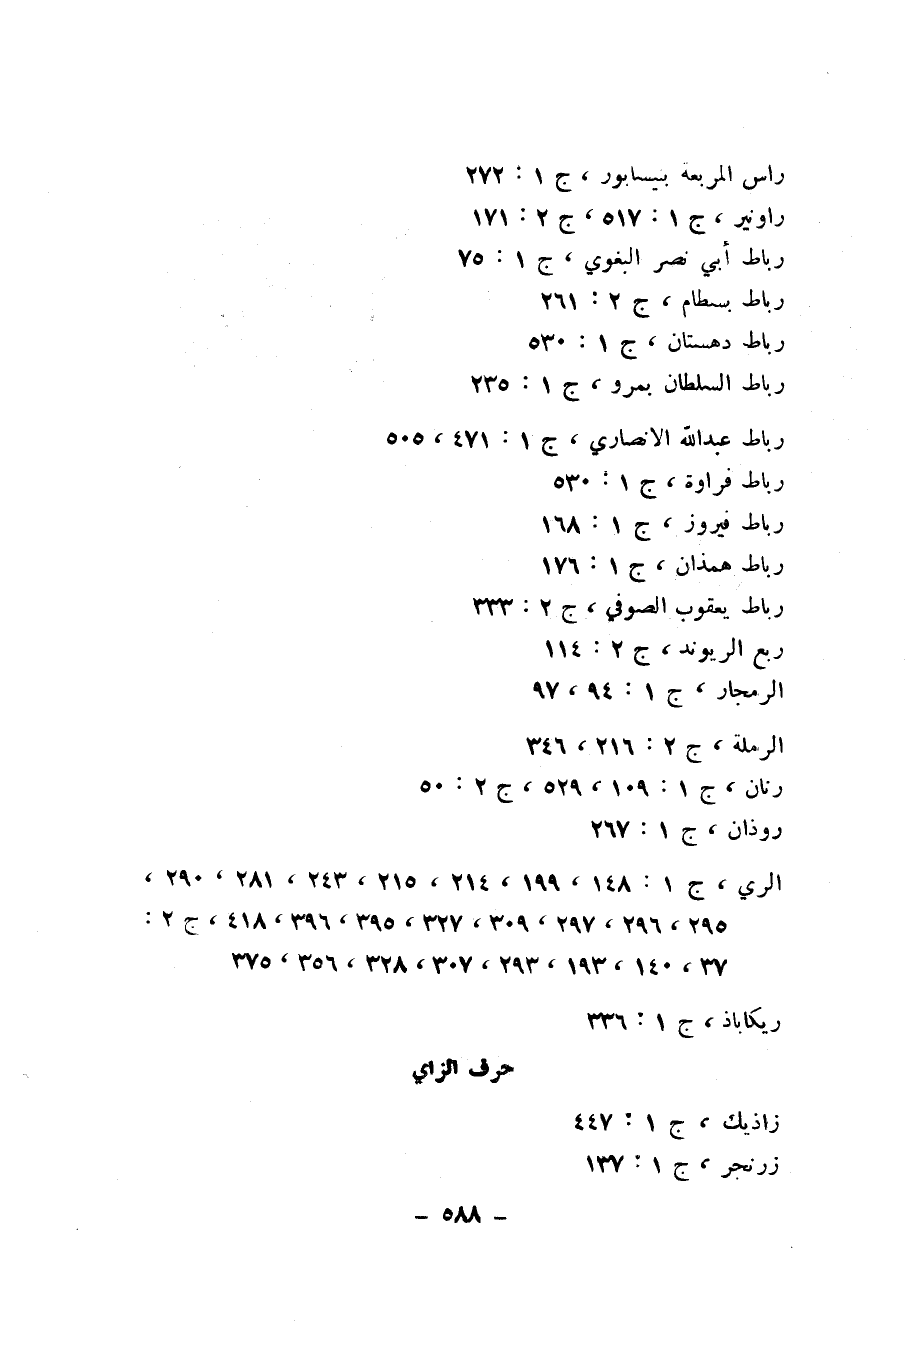 راس المربعة بنيسابور ، ج ١ : ٢٧٢
راونير ، ج ١ : ٥١٧ ، ج ٢ : ١٧١
رباط أبي نصر البغوي ، ج ١ : ٧٥
رباط بسطام ، ج ٢ : ٢٦١
رباط دهستان ، ج ١ : ٥٣٠
رباط السلطان بمرو ، ج ١ : ٢٣٥
رباط عبدالله الانصاري ، ج ١ : ٤٧١ ، ٥٠٥
رباط فراوة ، ج ١ : ٥٣٠
رباط فيروز ، ج ١ : ١٦٨
رباط همذان ، ج ١ : ١٧٦
رباط يعقوب الصوفي ، ج ٢ : ٣٣٣
ربع الريوند ، ج ٢ : ١١٤
الرمجار ، ج ١ : ٩٤ ، ٩٧
الرملة ، ج ٢ : ٢١٦ ، ٣٤٦
رنان ، ج ١ : ١٠٩ ، ٥٢٩ ، ج ٢ : ٥٠
روذان ، ج ١ : ٢٦٧
الري ، ج ١ : ١٤٨ ، ١٩٩ ، ٢١٤ ، ٢١٥ ، ٢٤٣ ، ٢٨١ ، ٢٩٠ ،
٢٩٥ ، ٢٩٦ ، ٢٩٧ ، ٣٠٩ ، ٣٢٧ ، ٣٩٥ ، ٣٩٦ ، ٤١٨ ، ج ٢ :
٣٧ ، ١٤٠ ، ١٩٣ ، ٢٩٣ ، ٣٠٧ ، ٣٢٨ ، ٣٥٦ ، ٣٧٥
ريكاباذ ، ج ١ : ٣٣٦
حرف الزاي
زاذيك ، ج ١ : ٤٤٧
زرنجر ، ج ١ : ١٣٧
– ٥٨٨ –